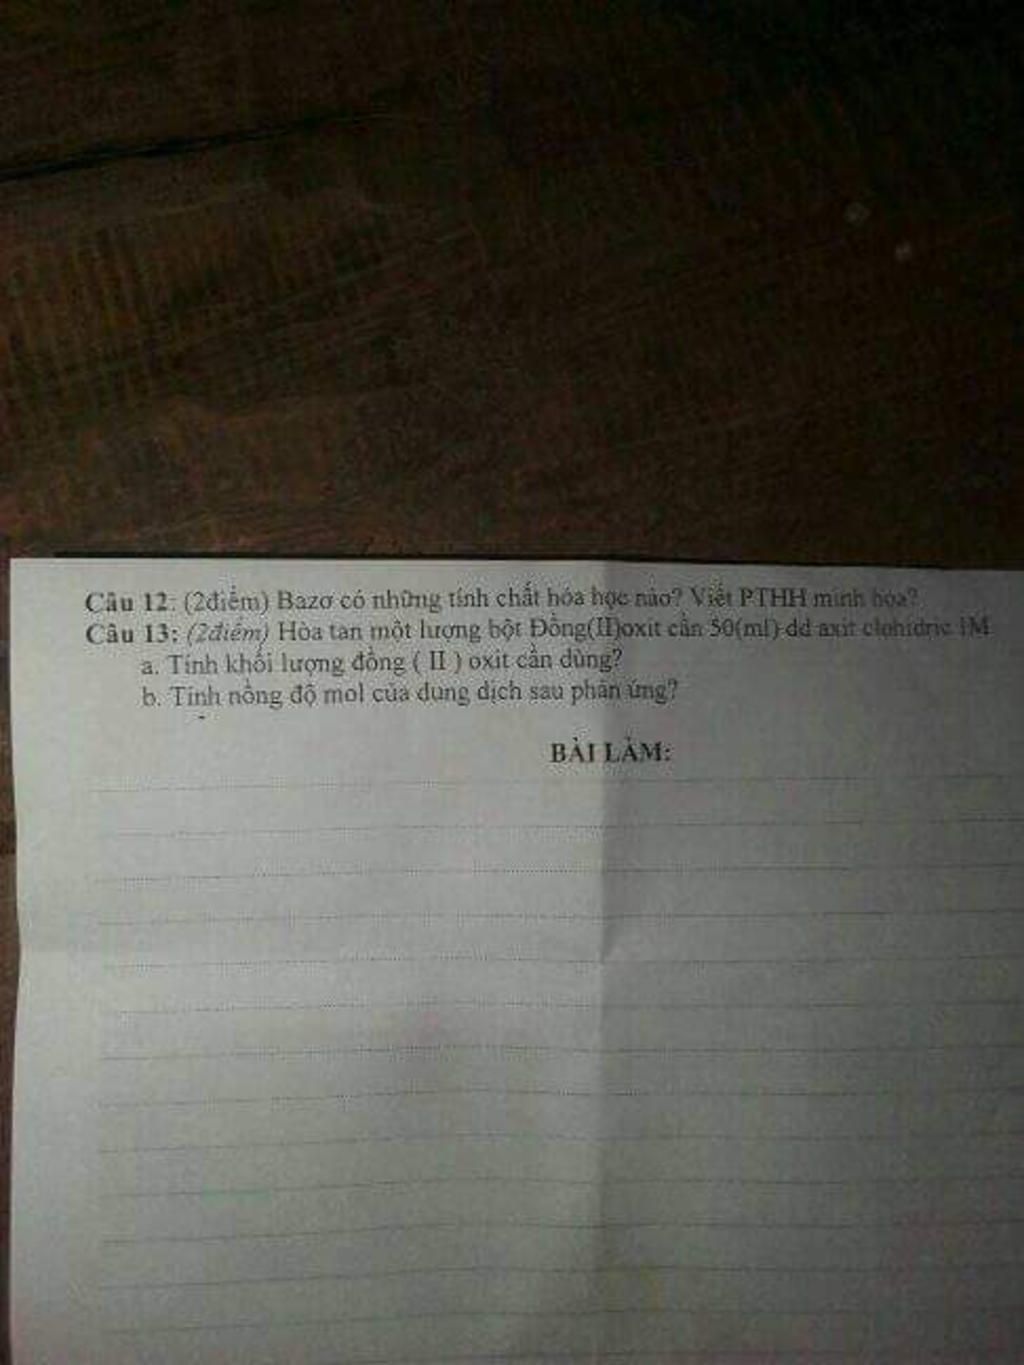 Câu 12: (2điểm) Bazơ có những tính chất hóa học nào? Viết PTHH minh họa?
Câu 13: (2điểm) Hòa tan một lượng bột Đồng(II)oxit cần 50(ml) dd axit clohidric 1M
a. Tính khối lượng đồng ( II ) oxit cần dùng?
b. Tính nồng độ mol của dung dịch sau phản ứng?
BÀI LÀM: